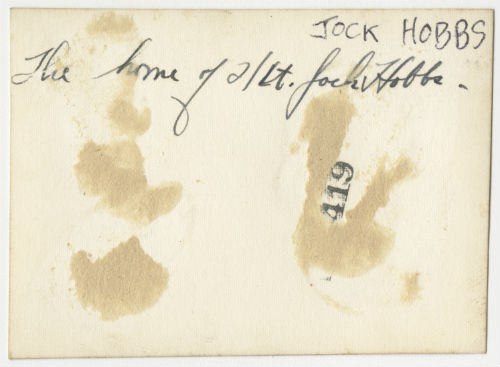 JOCK HOBBS
The home of 2/Lt. Jock Hobbs.
419